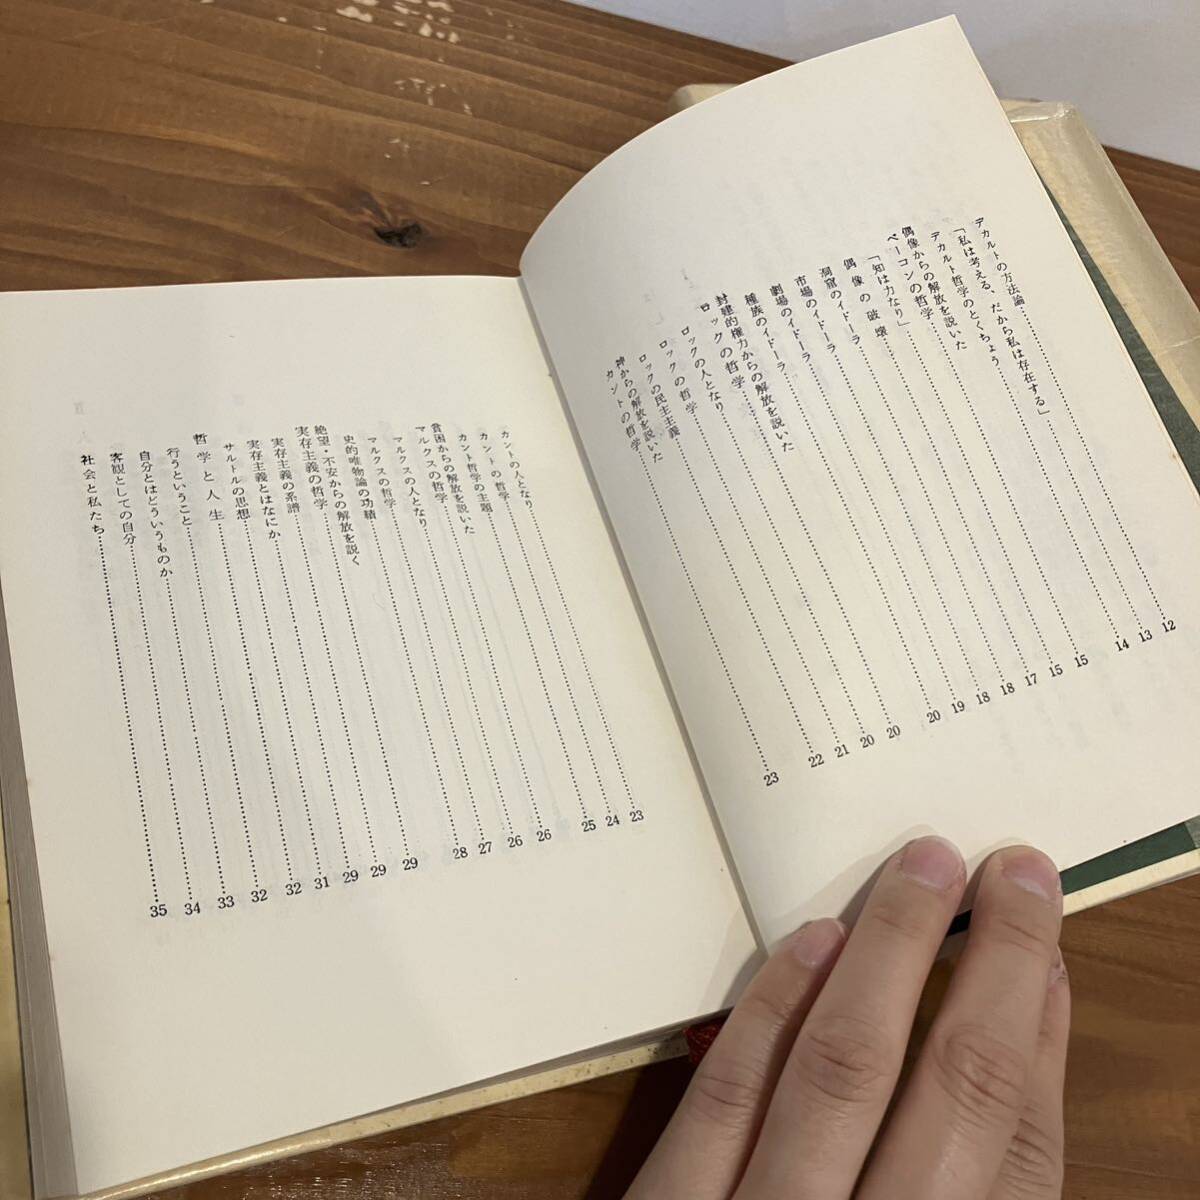 デカルトの方法論……12
「私は考える、だから私は存在する」……13
デカルト哲学のとくちょう……14
偶像からの解放を説いた
ベーコンの哲学……15
「知は力なり」……15
偶像の破壊……17
洞窟のイドーラ……18
市場のイドーラ……18
劇場のイドーラ……19
種族のイドーラ……20
封建的権力からの解放を説いた
ロックの哲学……20
ロックの人となり……20
ロックの哲学……21
ロックの民主主義……22
神からの解放を説いた
カントの哲学……23
カントの人となり……23
カントの哲学……24
カント哲学の主題……25
貧困からの解放を説いた
マルクスの哲学……26
マルクスの人となり……26
マルクスの哲学……27
史的唯物論の功積……28
絶望・不安からの解放を説く
実存主義の哲学……29
実存主義の系譜……29
実存主義とはなにか……29
サルトルの思想……31
哲学と人生……32
行うということ……32
自分とはどういうものか……33
客観としての自分……34
社会と私たち……35